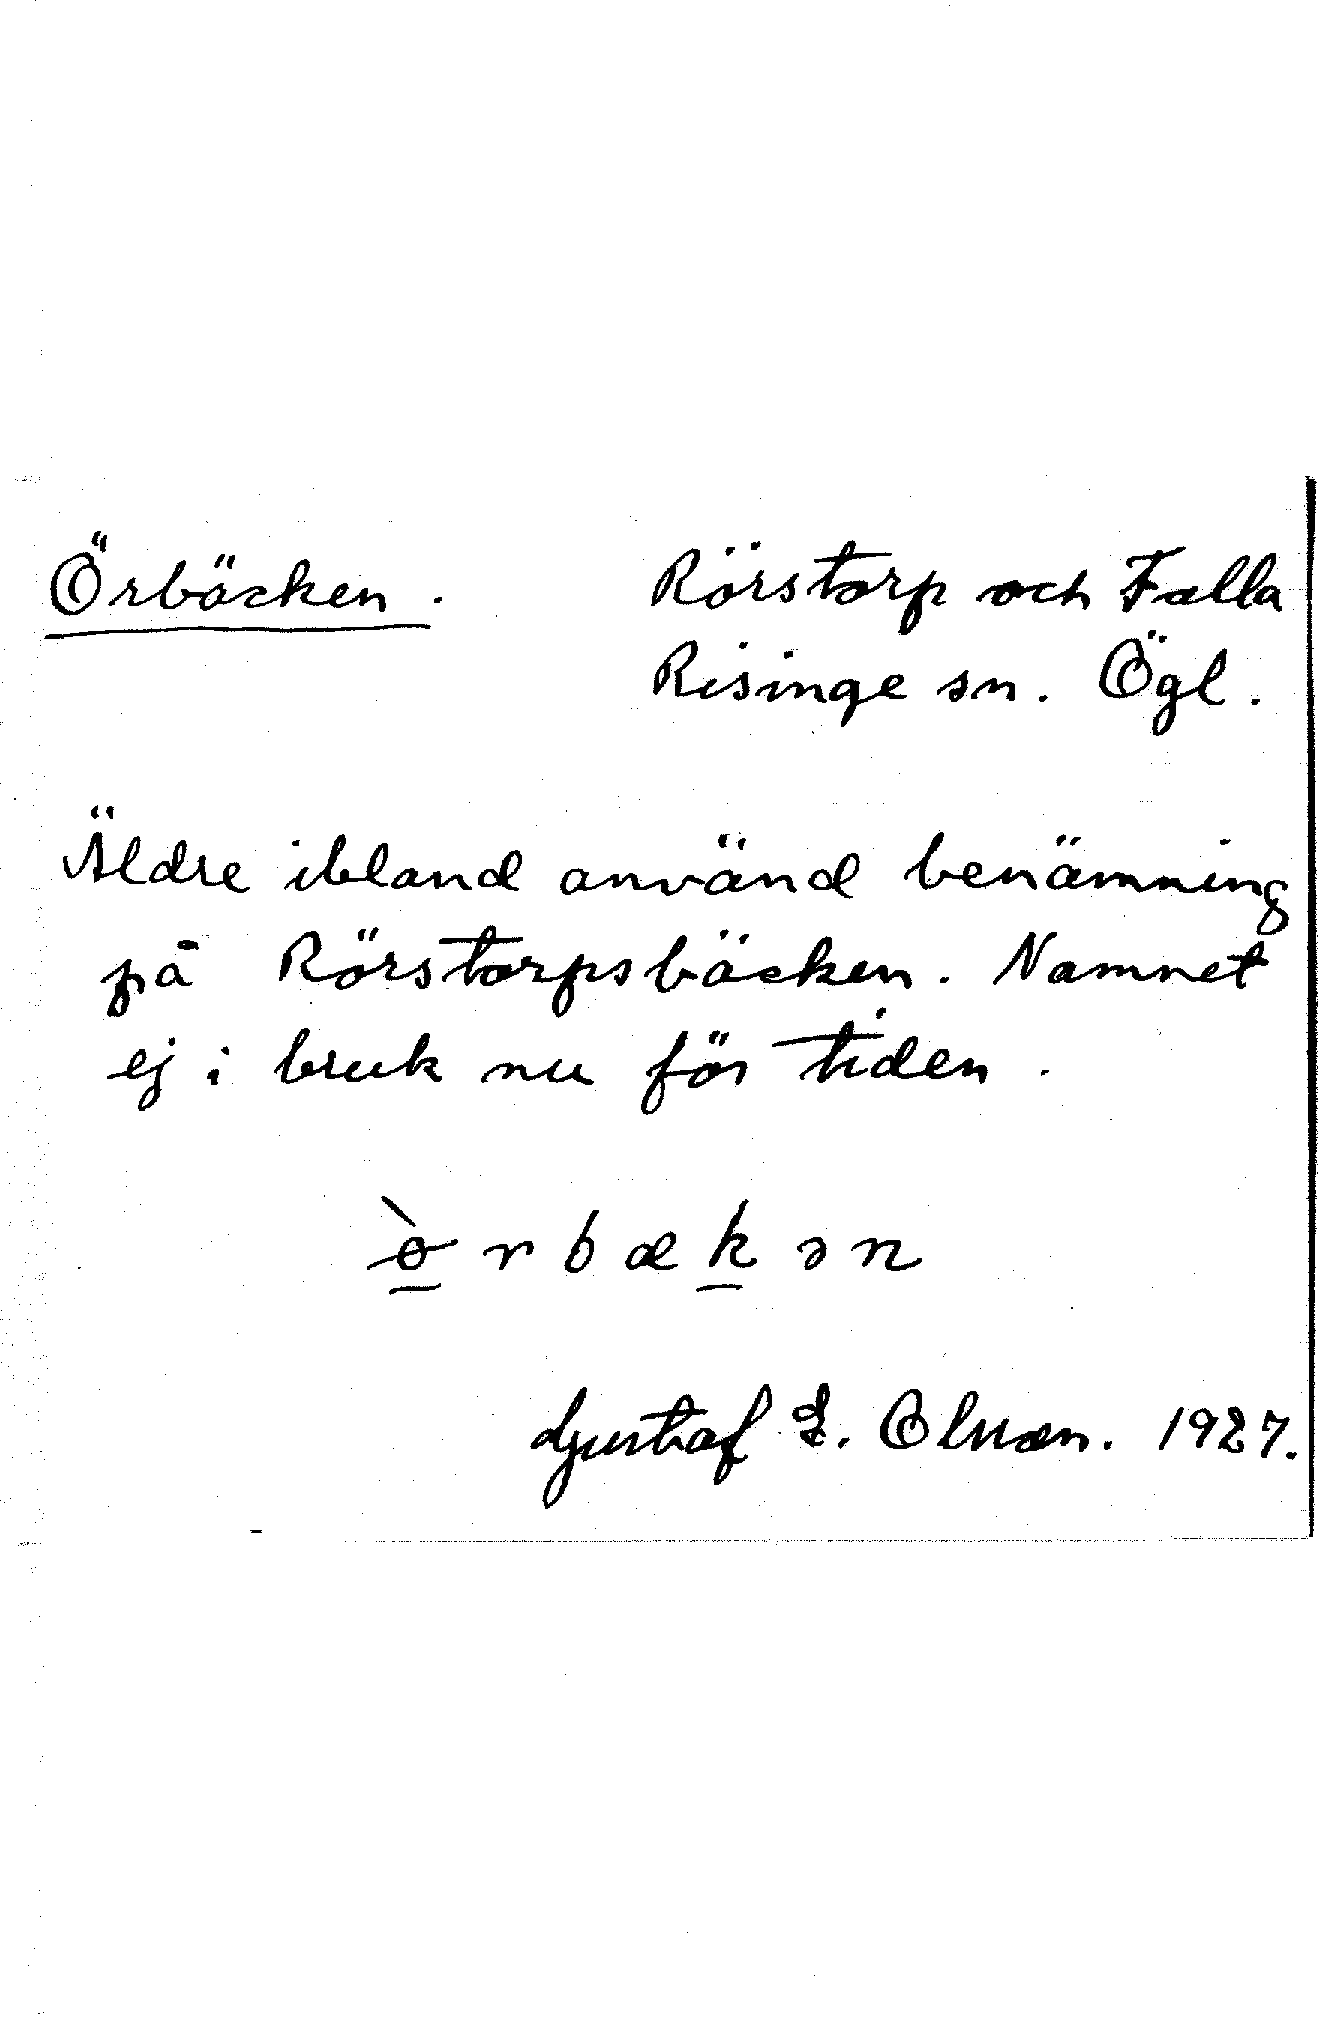 Örbäcken.
Rörstorp och Falla
Risinge sn. Ögl.
Äldre ibland använd benämning
på Rörstorpsbäcken. Namnet
ej i bruk nu för tiden.
ø̱̀rbæḵən
Gustaf E. Olsson. 1927.